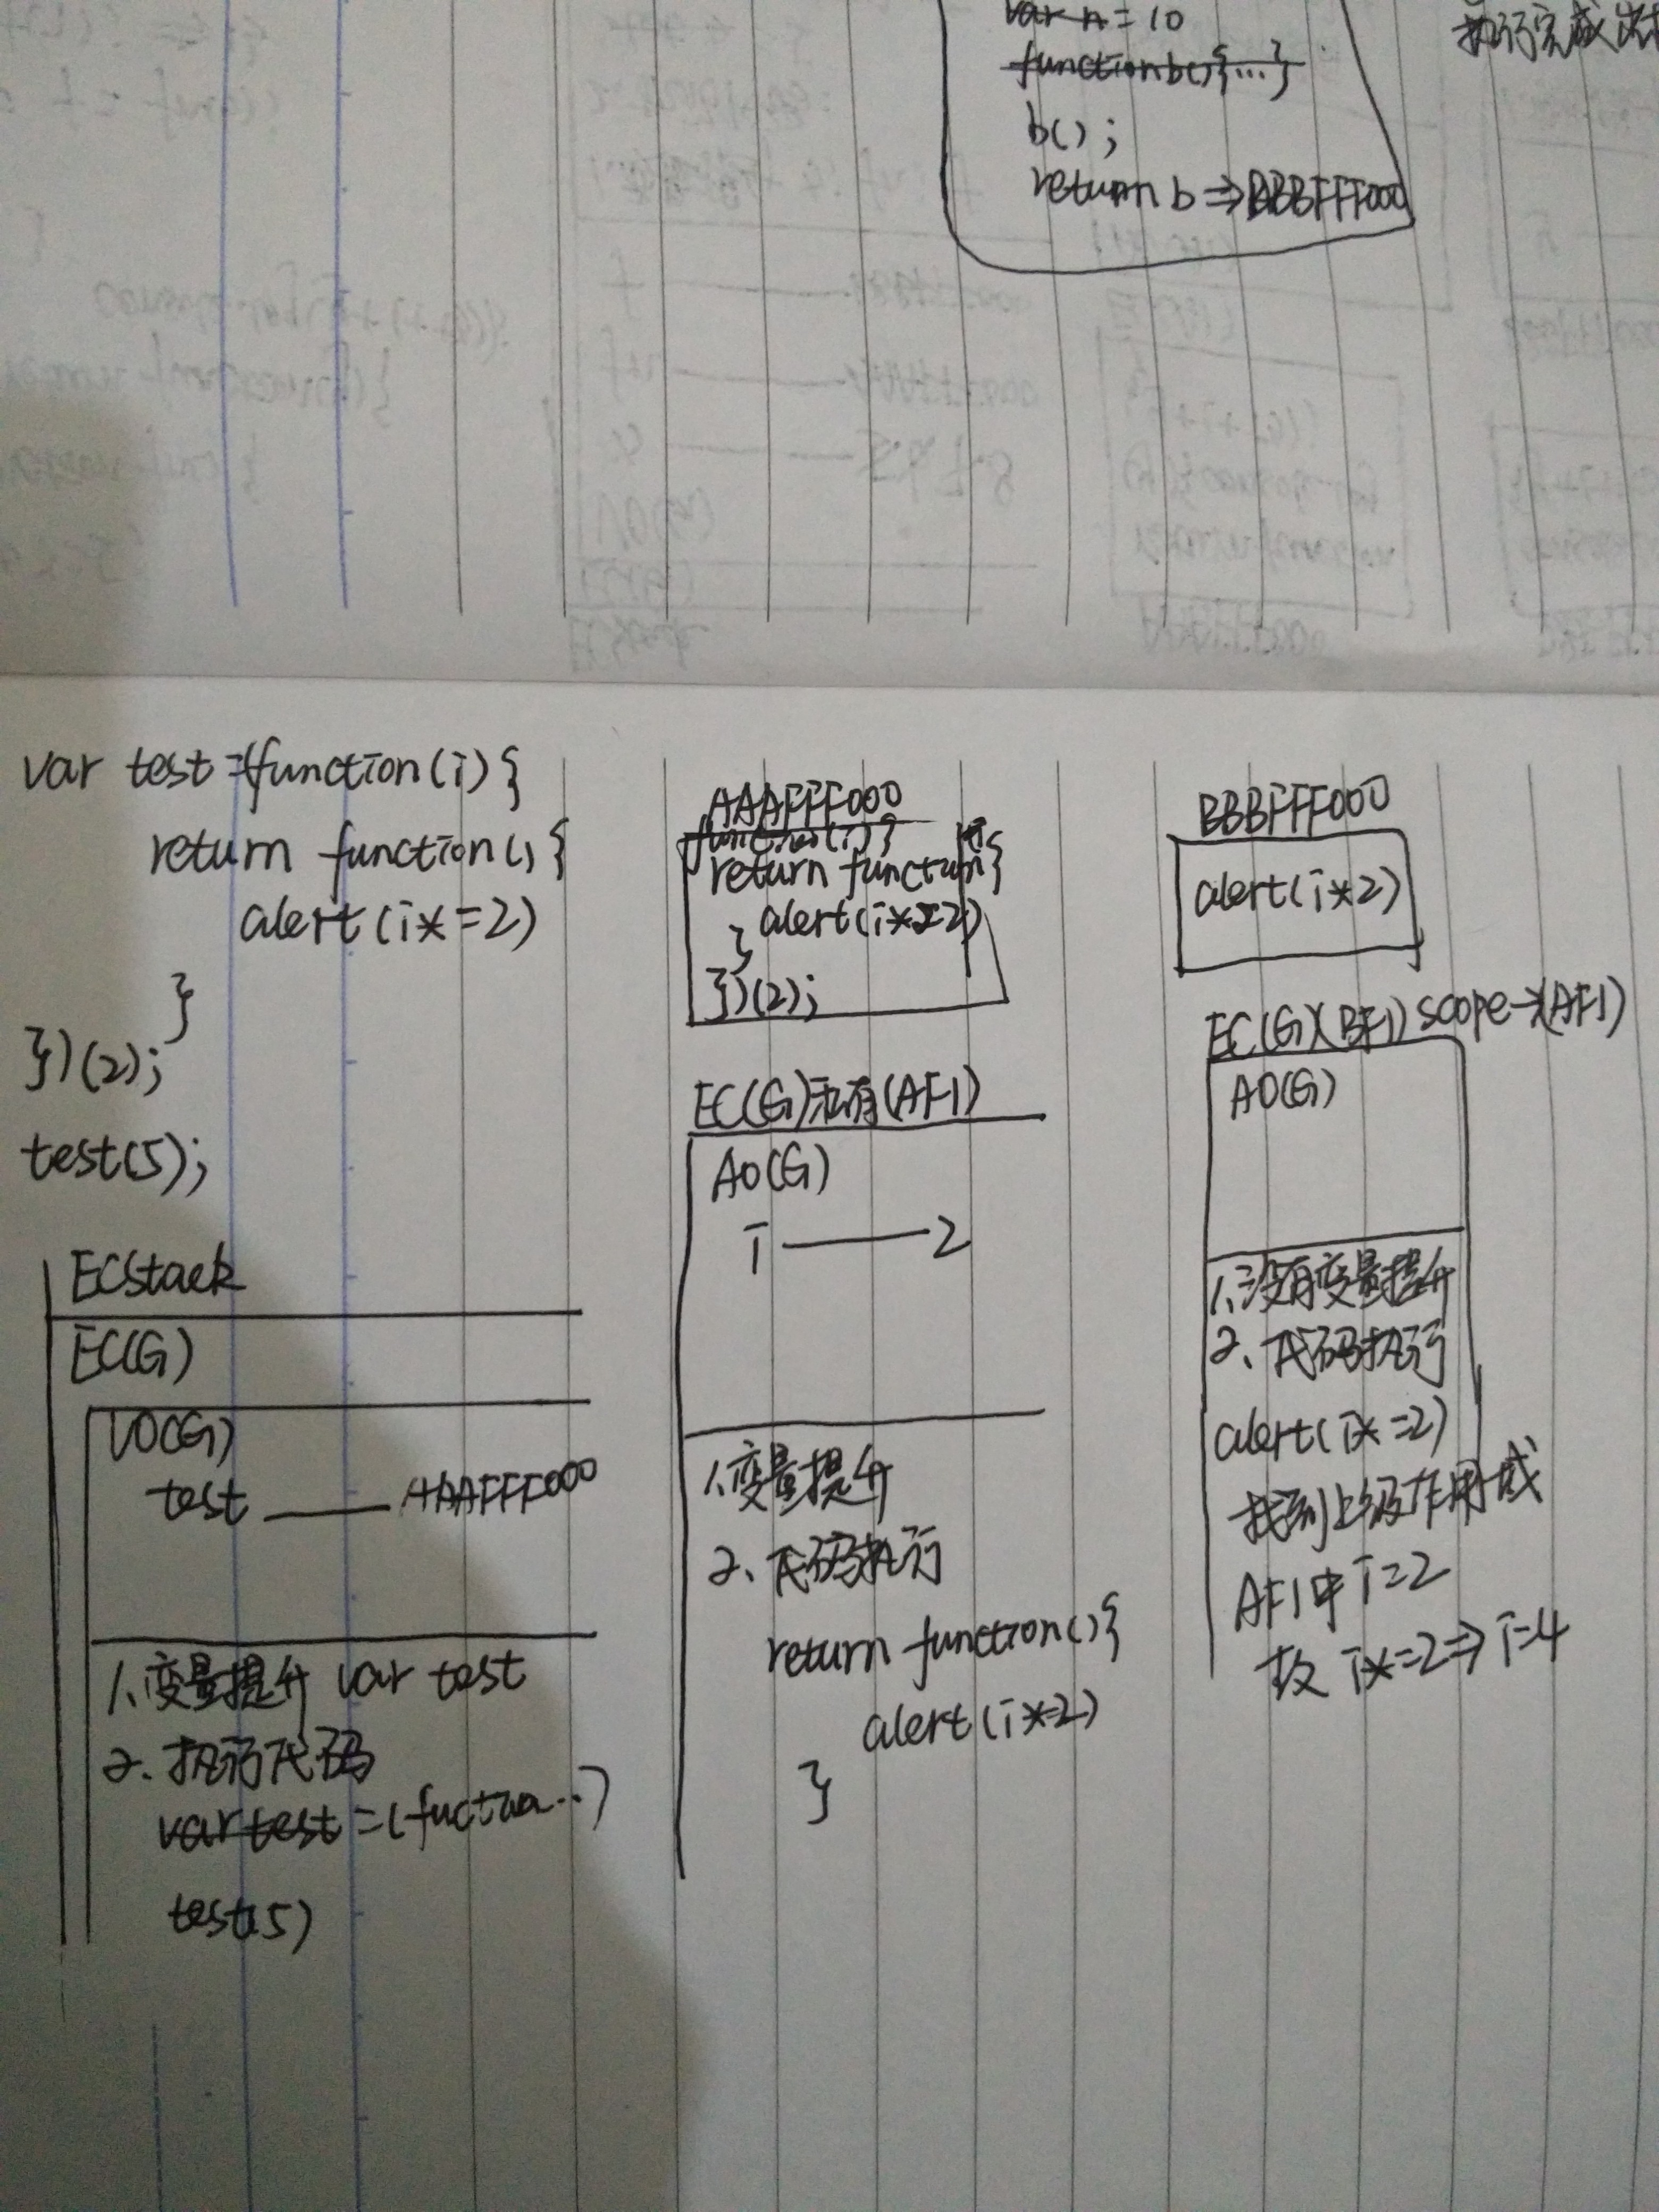 var n = 10
function b(){...}
b();
return b ⇒ BBBFFF000
执行完成
var test =(function(i){
return function(){
alert(i*=2)
}
})(2);
test(5);
ECStack
EC(G)
VO(G)
test —— AAAFFF000
1、变量提升 var test
2、执行代码
var test =(fuction...)
test(5)
AAAFFF000
function(i){
return function{
alert(i*=2)
}
})(2);
EC(G)私有(AF1)
AO(G)
i —— 2
1、变量提升
2、代码执行
return function(){
alert(i*=2)
}
BBBFFF000
alert(i*2)
EC(G)(BF1) scope→(AF1)
AO(G)
1、没有变量提升
2、代码执行
alert(i*=2)
找到上级作用域
AF1中i=2
故 i*=2⇒i=4